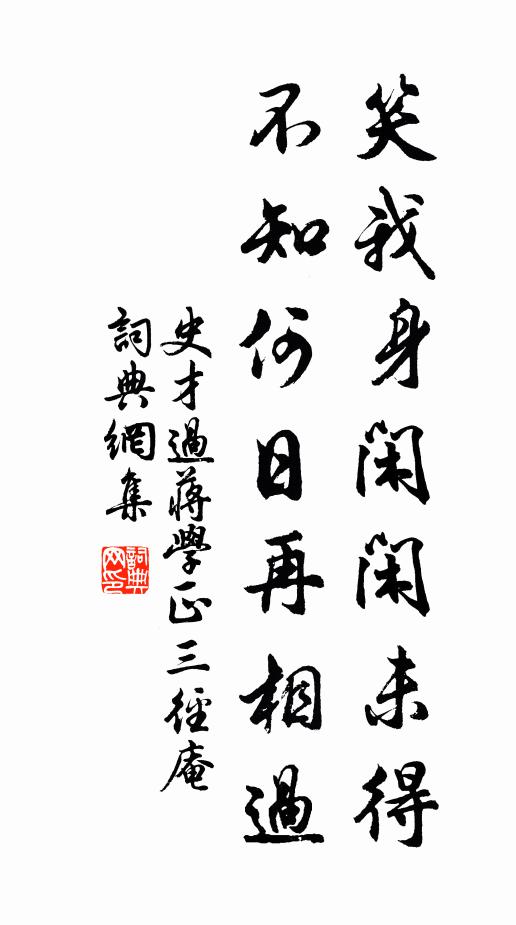 笑我身閑閑未得
不知何日再相過
史才過蔣學正三徑庵
詞典網集
詞典網印